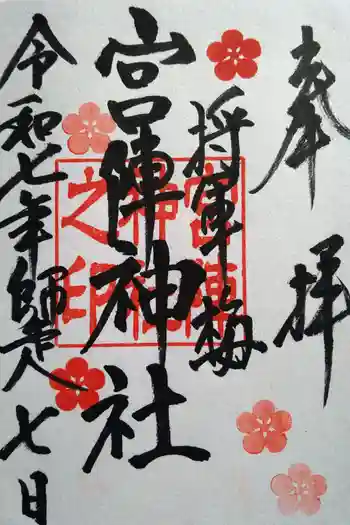 奉拝
将軍梅
宮陣神社
令和七年師走七日
宮陣
神社
之印